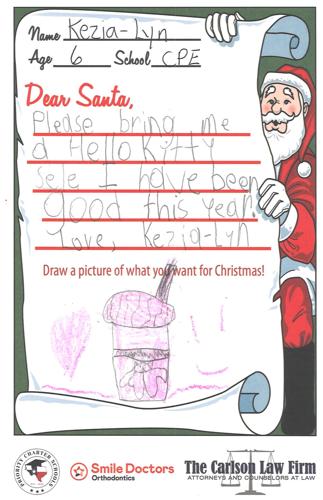 Name Kezia-Lyn
Age 6 School CPE
Dear Santa,
Please bring me
a Hello Kitty
sele I have been
good this year
Love, Kezia-Lyn
Draw a picture of what you want for Christmas!
PRIORITY CHARTER SCHOOLS
Smile Doctors
Orthodontics
The Carlson Law Firm
ATTORNEYS AND COUNSELORS AT LAW